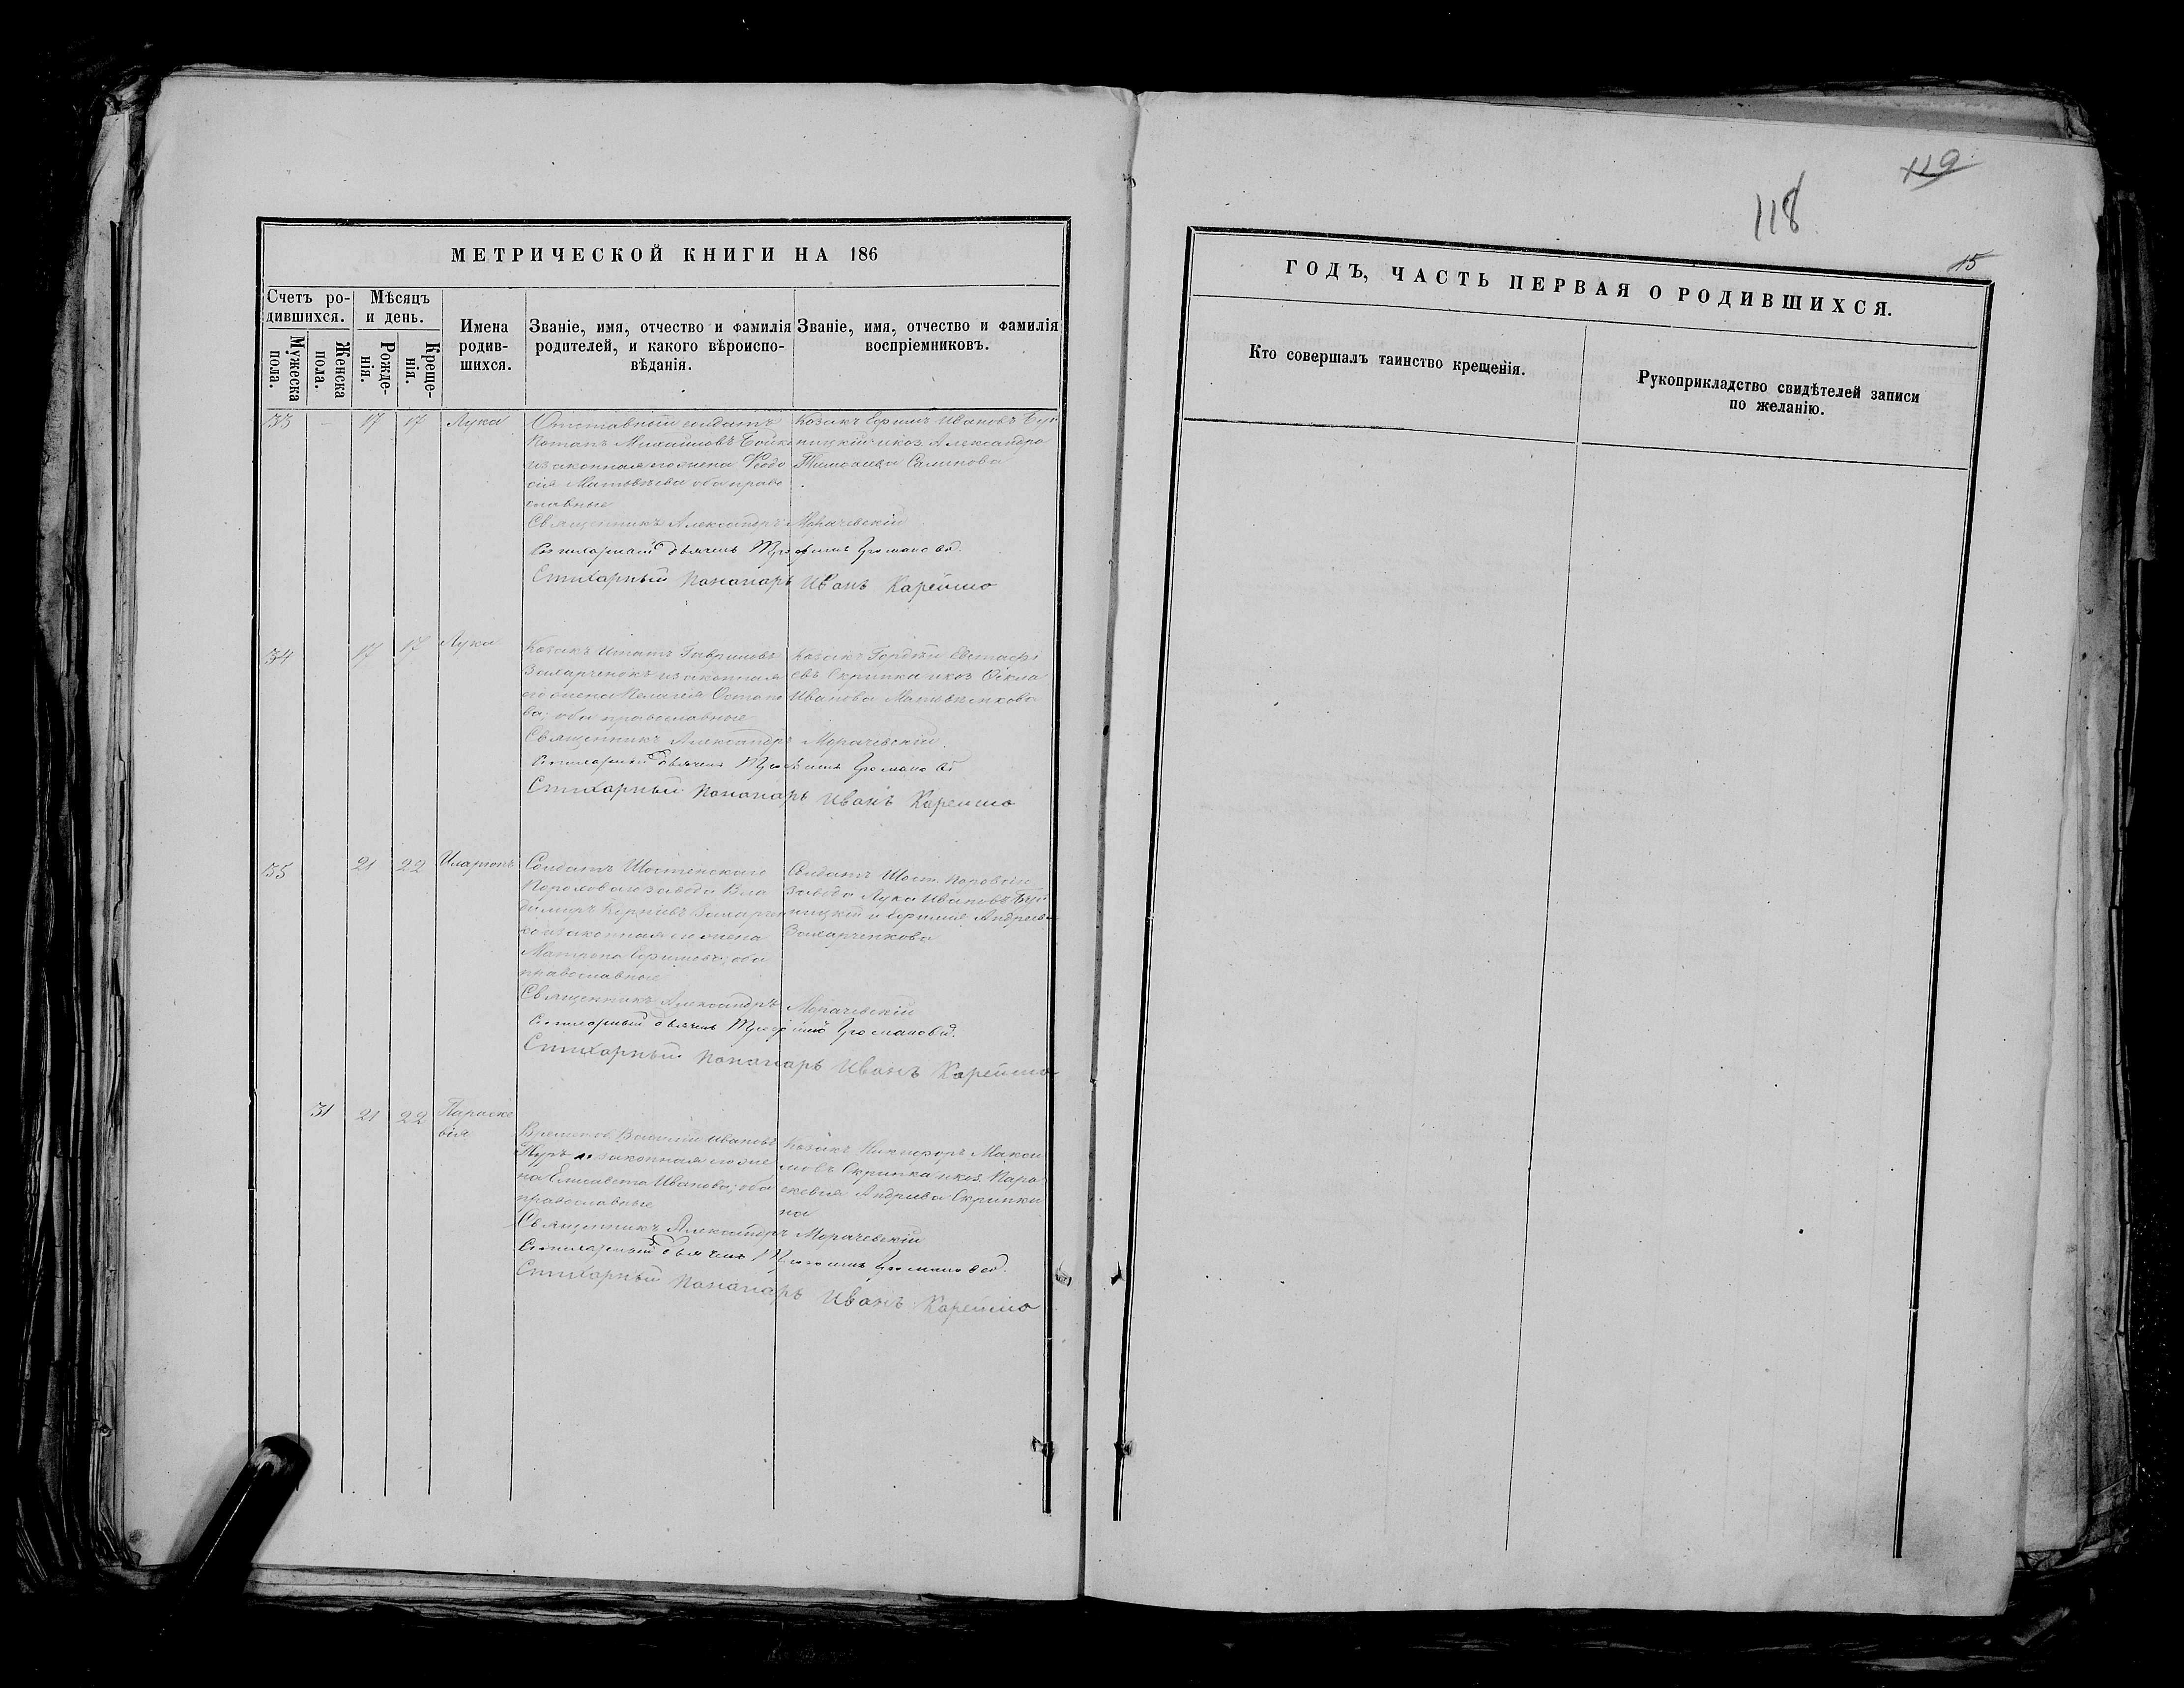 МЕТРИЧЕСКОЙ КНИГИ НА 186
Счетъ ро-
дившихся.
Мѣсяцъ
и день.
Мужеска
пола.
Женска
пола.
Рожде-
нія.
Креще-
нія.
Имена
родив-
шихся.
Званіе, имя, отчество и фамилія
родителей, и какого вѣроиспо-
вѣданія.
Званіе, имя, отчество и фамилія
воспріемниковъ.
33 – 17 17 Лука
Отставный солдатъ
Потапъ Михайловъ Бойко
и законная его жена Феодо
сія Матвѣева оба право
славные
Козакъ Ефимъ Ивановъ
и коз. Александра
Священникъ Александръ Морачевскій
Стихарный дьячекъ
Стихарный Пономарь Иванъ Карейшо
34 17 17 Лука
Козакъ Игнатъ Гавриловъ
Захарченокъ и законная
его жена Пелагея Остапо
ва; оба православные
Козакъ Гордѣй Евстафі
евъ Скрипка и коз. Фекла
Иванова Матвѣенкова
Священникъ Александръ Морачевскій
Стихарный дьячекъ
Стихарный Пономарь Иванъ Карейшо
35 21 22 Иларіонъ
Солдатъ Шостенскаго
Пороховаго завода Вла
димиръ Корніевъ Захарчен
ко и законная его жена
Матрона Ефимова; оба
православные
Солдатъ Шост. порова
завода Лука Ивановъ
и Ефимія Андреева
Захарченкова
Священникъ Александръ Морачевскій
Стихарный дьячекъ
Стихарный Пономарь Иванъ Карейшо
31 21 22 Параске
вія
Василій Ивановъ
и законная его же
на Елисавета Иванова; оба
православные
Козакъ Никифоръ Макси
мовъ Скрипка и коз. Пара
скевія Андреева Скрипки
на
Священникъ Александръ Морачевскій
Стихарный дьячекъ
Стихарный Пономарь Иванъ Карейшо
119
118
15
ГОДЪ, ЧАСТЬ ПЕРВАЯ О РОДИВШИХСЯ.
Кто совершалъ таинство крещенія.
Рукоприкладство свидѣтелей записи
по желанію.